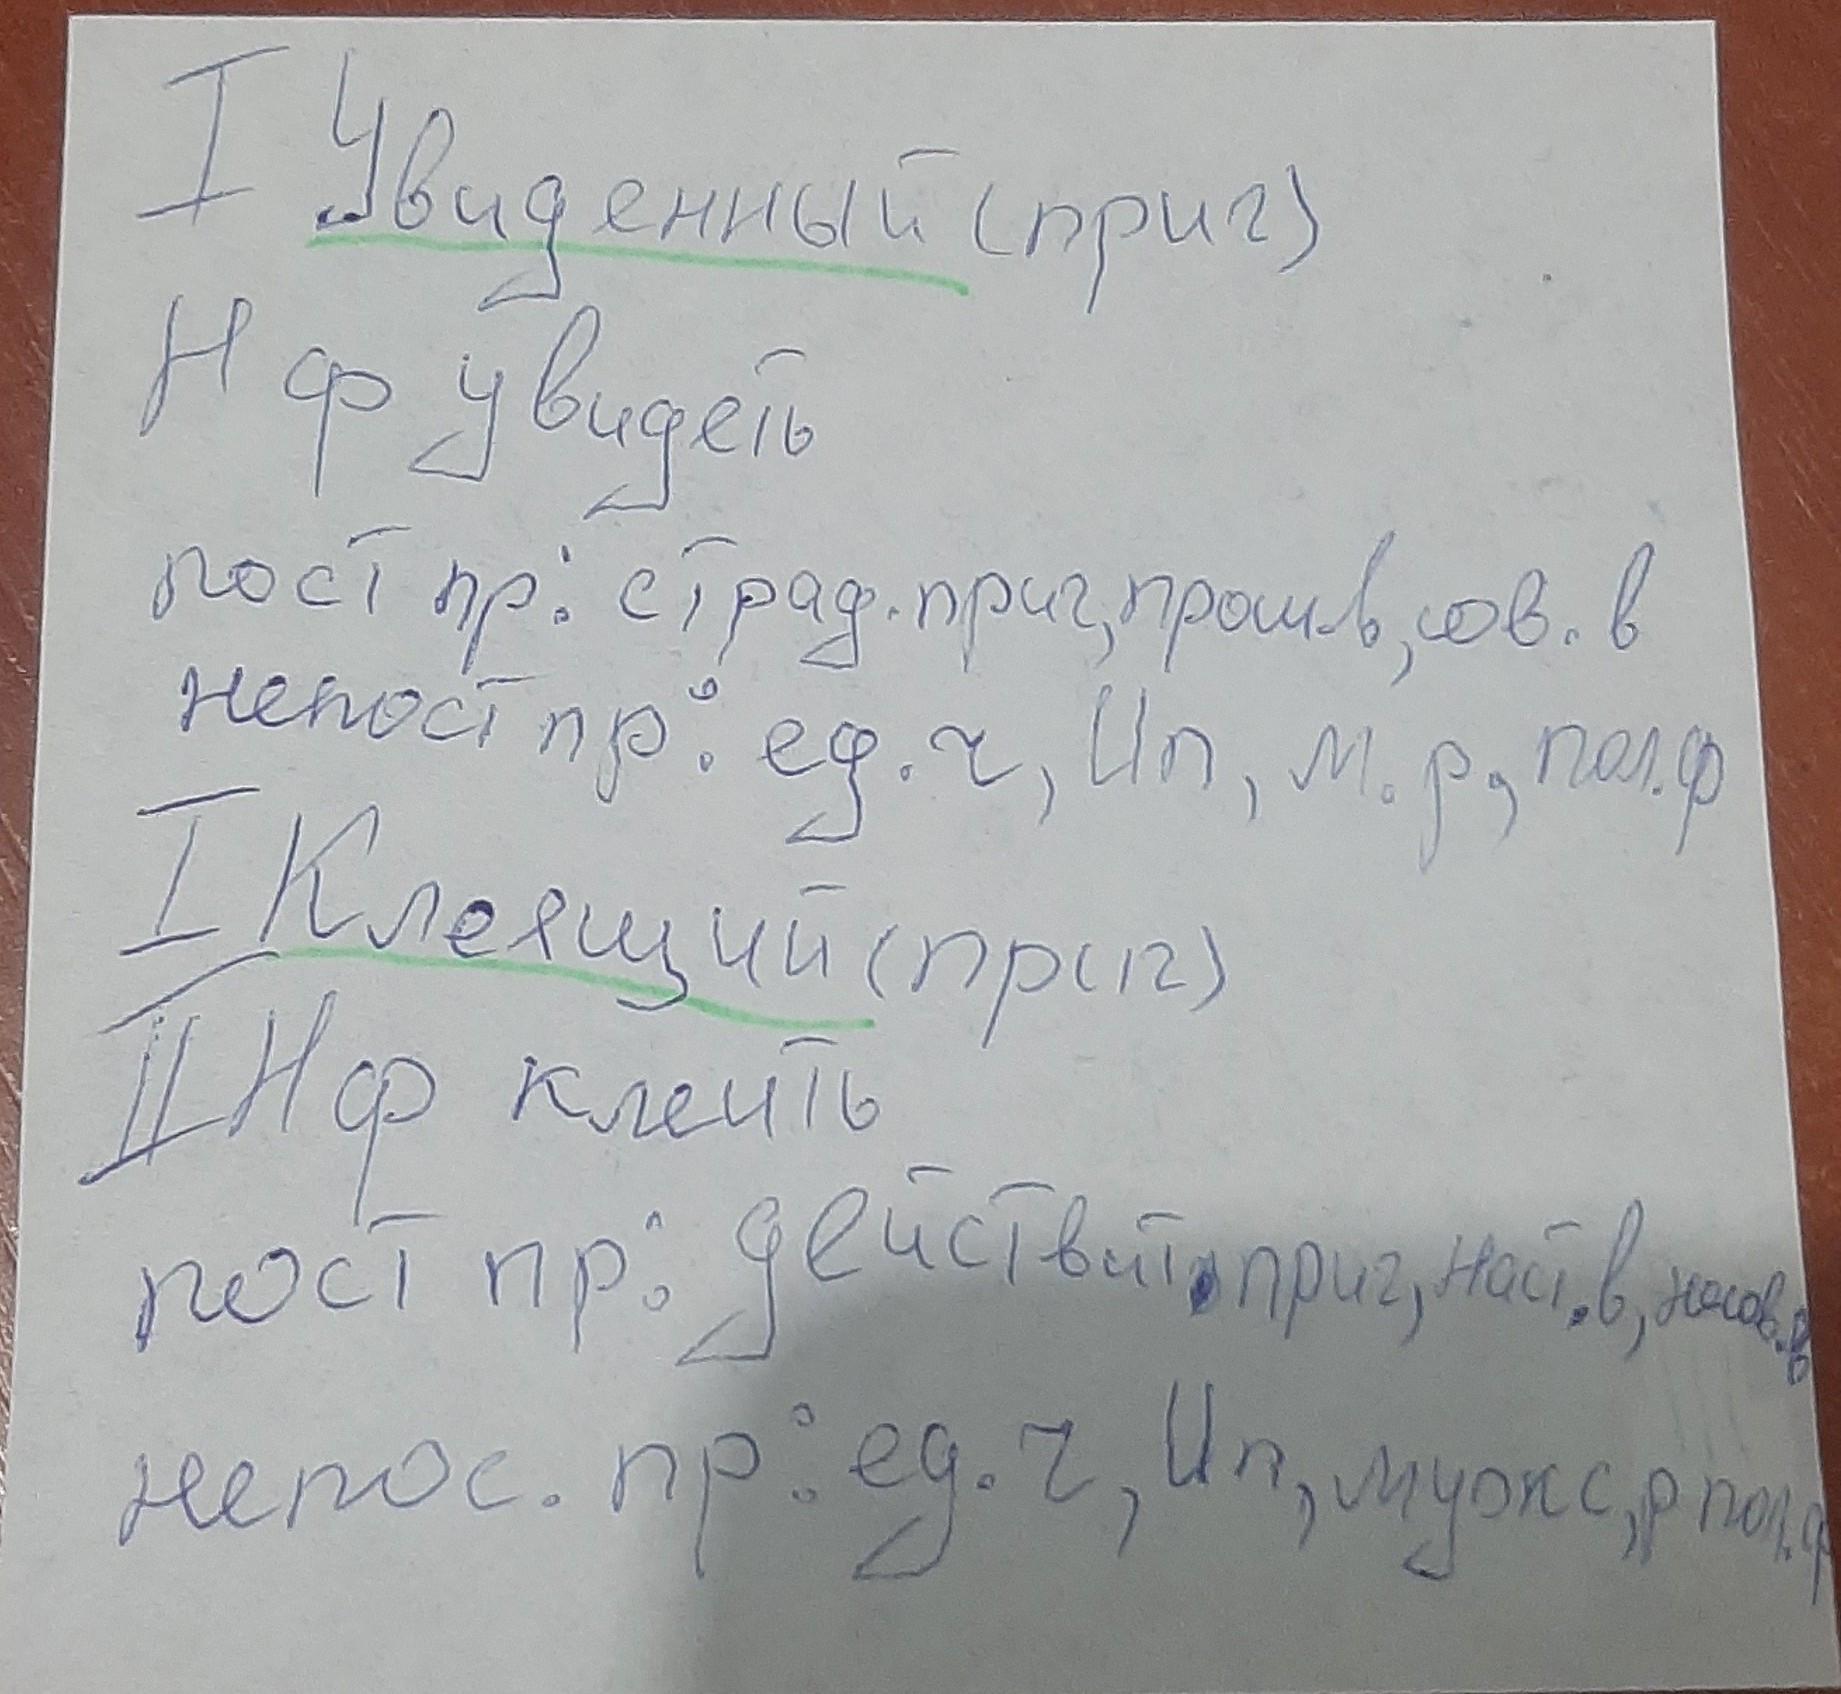 I Увиденный (прич)
Н ф увидеть
пост пр: страд. прич, прош.в, сов. в
непост пр: ед. ч, Ип, м. р, пол.ф
I Клеящий (прич)
II Н ф клеить
пост пр: действит. прич, наст. в, несов. в
непос. пр: ед. ч, Ип, мужс, р пол.ф